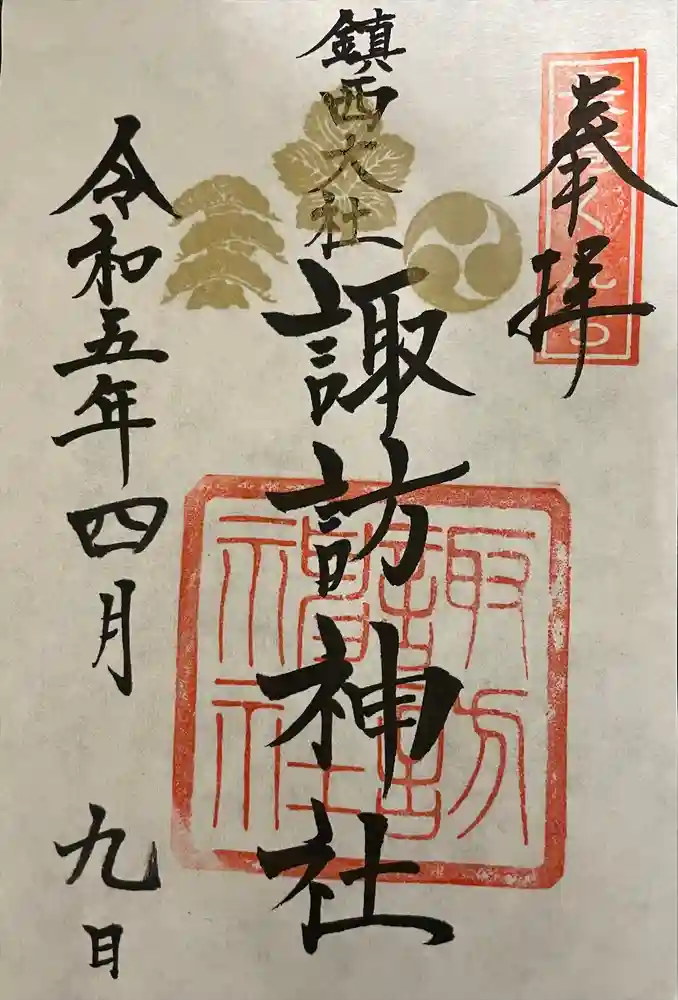 奉拝
鎮西大社
諏訪神社
諏訪神社
令和五年四月 九日